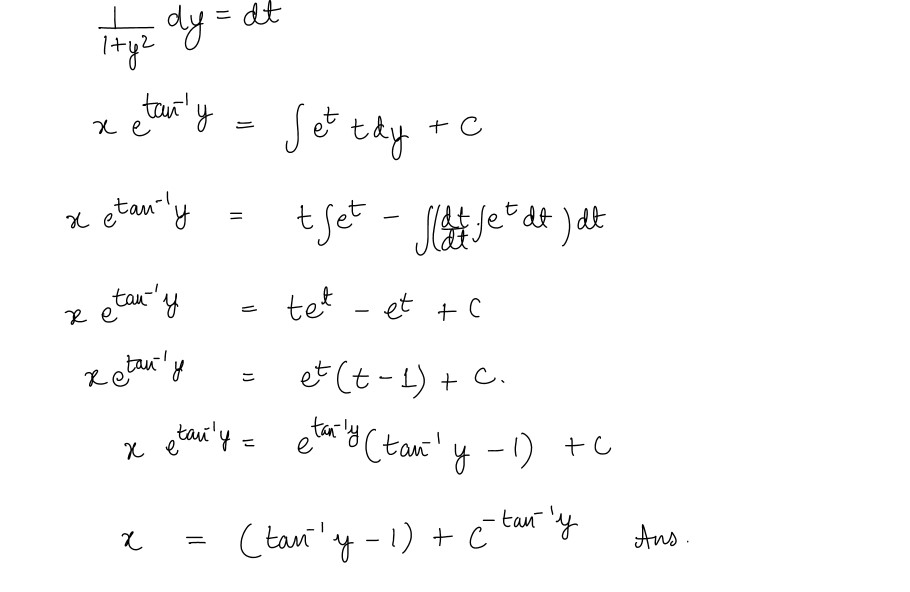 1/(1+y²) dy = dt
x e^(tan⁻¹ y) = ∫ e^t t dy + C
x e^(tan⁻¹ y) = t ∫ e^t − ∫ (dt/dt ∫ e^t dt) dt
x e^(tan⁻¹ y) = te^t − e^t + C
x e^(tan⁻¹ y) = e^t (t − 1) + C.
x e^(tan⁻¹ y) = e^(tan⁻¹ y) (tan⁻¹ y − 1) + C
x = (tan⁻¹ y − 1) + C^(−tan⁻¹ y) Ans.